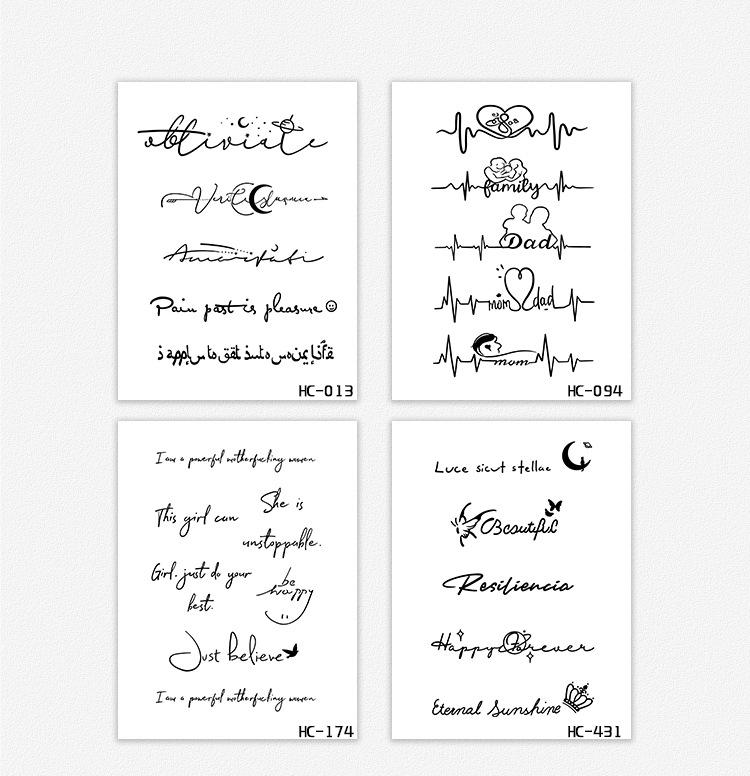 obliviate
Amor Fati
Pain past is pleasure
HC-013
family
Dad
mom dad
mom
HC-094
I am a powerful motherfucking women
This girl can
She is
unstoppable.
Girl. just do your
best.
be
happy
Just believe
I am a powerful motherfucking women
HC-174
Luce sicut stellae
Beautiful
Resiliencia
Happy Forever
Eternal Sunshine
HC-431